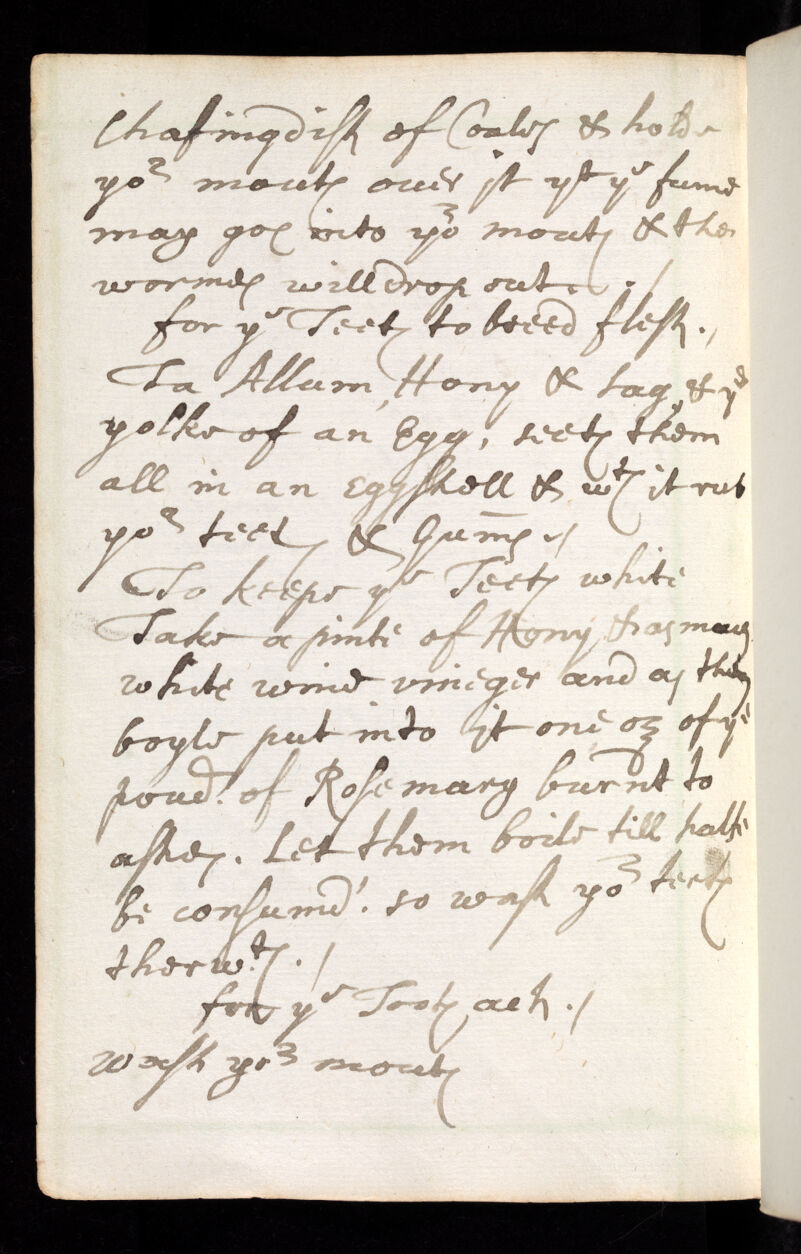 Chafingdish of Coales & holde
yor mouth ouer jt yt ye fume
may goe into yor mouth & the
wormes will drop out ./
for ye Teeth to breed flesh ./
Ta Allum, Hony & sag, & ye
yolke of an Egg, seeth them
all in an Eggshell & wth jt rub
yor teeth & Gums ./
To keepe ye Teeth white
Take a pinte of Hony, & as much
white wine vineger and as they
boyle put into jt one oz of ye
poud: of Rosemary burnt to
ashes. Let them boile till halfe
be consumd: so wash yor teeth
therwth ./
for ye Tooth ach ./
wash yor mouth